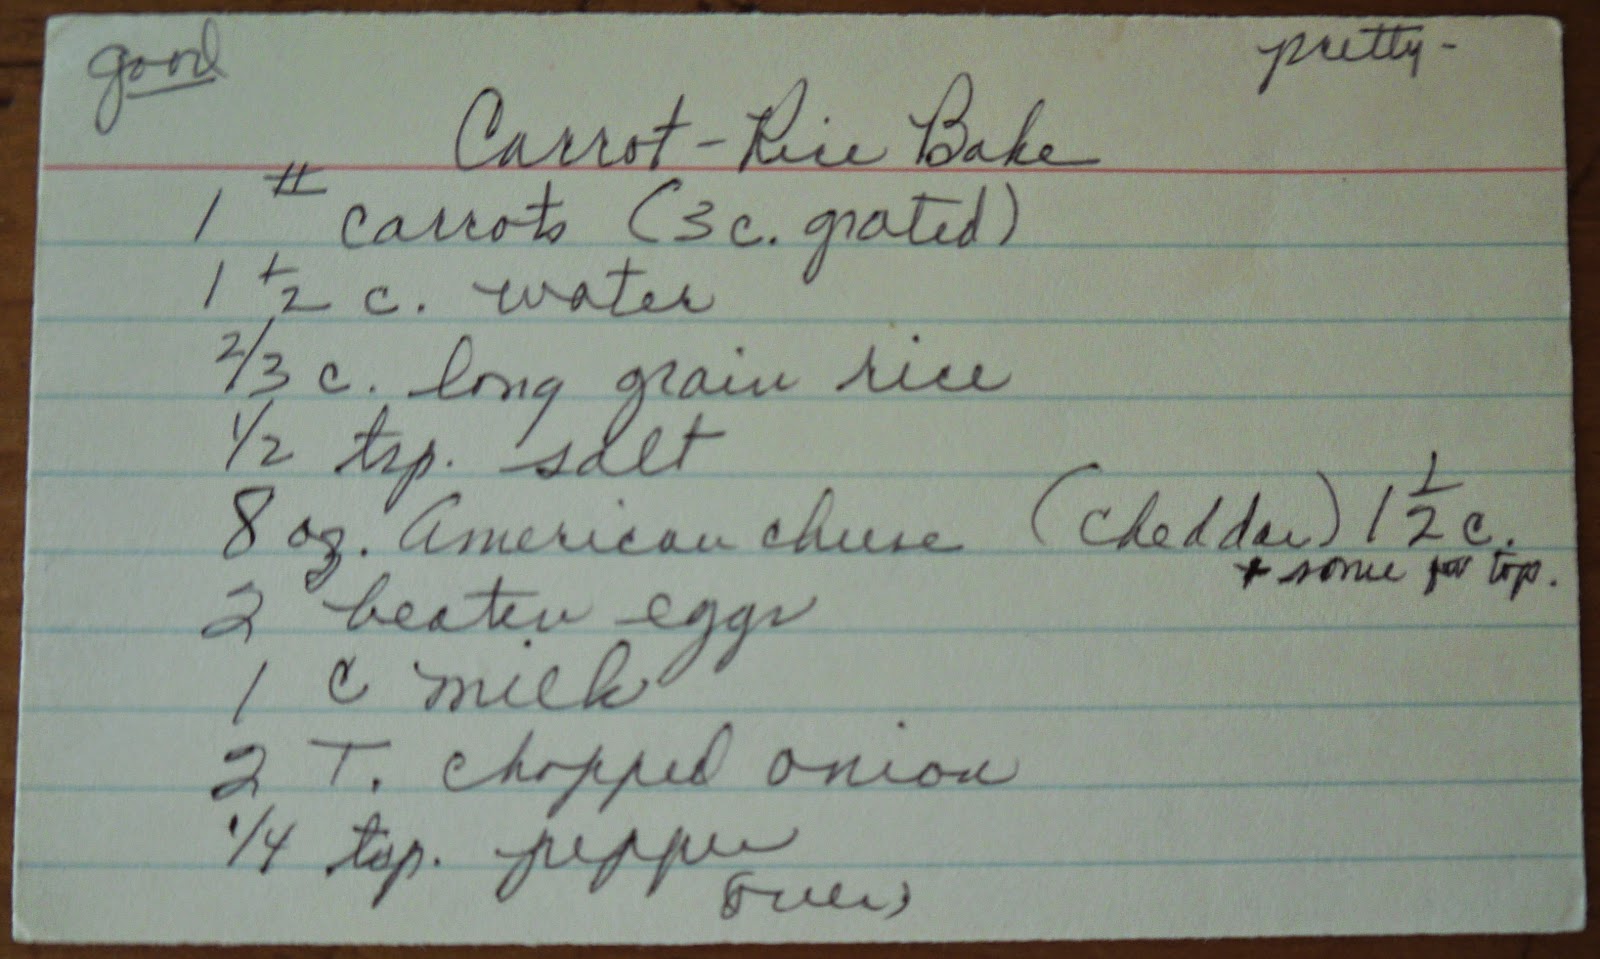 good
pretty-
Carrot-Rice Bake
1 # carrots (3 c. grated)
1 1/2 c. water
2/3 c. long grain rice
1/2 tsp. salt
8 oz. American cheese (cheddar) 1 1/2 c.
+ some for top.
2 beaten eggs
1 c milk
2 T. chopped onion
1/4 tsp. pepper
over)